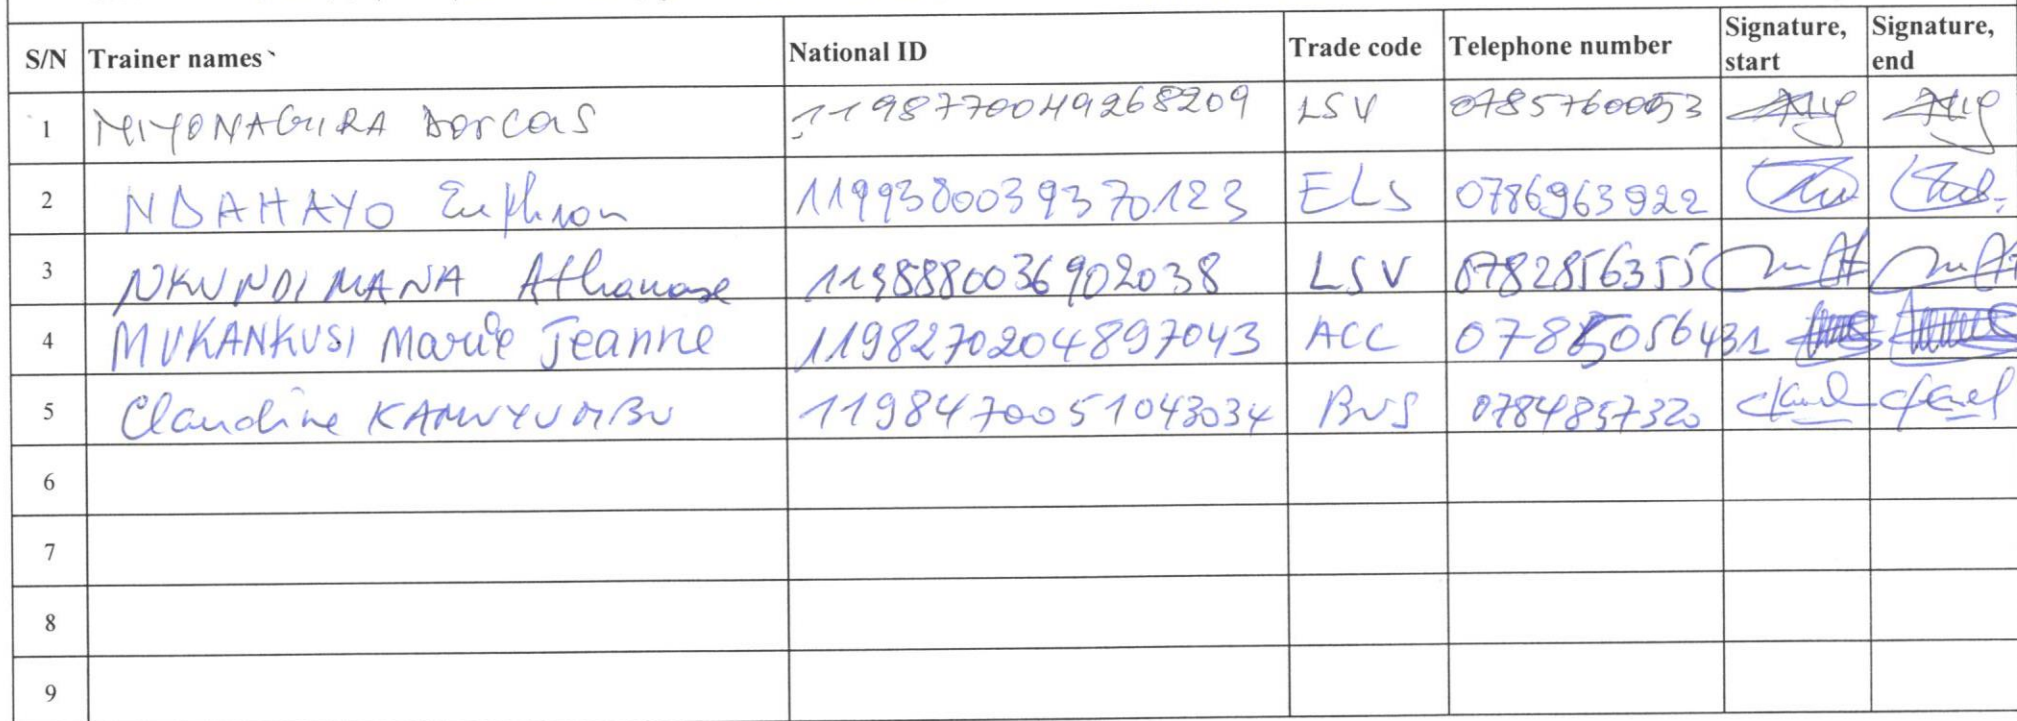 S/N Trainer names National ID Trade code Telephone number Signature, start Signature, end
1 MIYONAGIRA Dorcas 1198770049268209 LSV 0785760053
2 NDAHAYO Euphron 1199380039370123 ELS 0786963922
3 NKUNDIMANA Athanase 1198880036902038 LSV 0782856355
4 MUKANKUSI Marie Jeanne 1198270204897043 ACC 0785056431
5 Claudine KAMUYUMBU 1198470051043034 BUS 0784857320
6
7
8
9